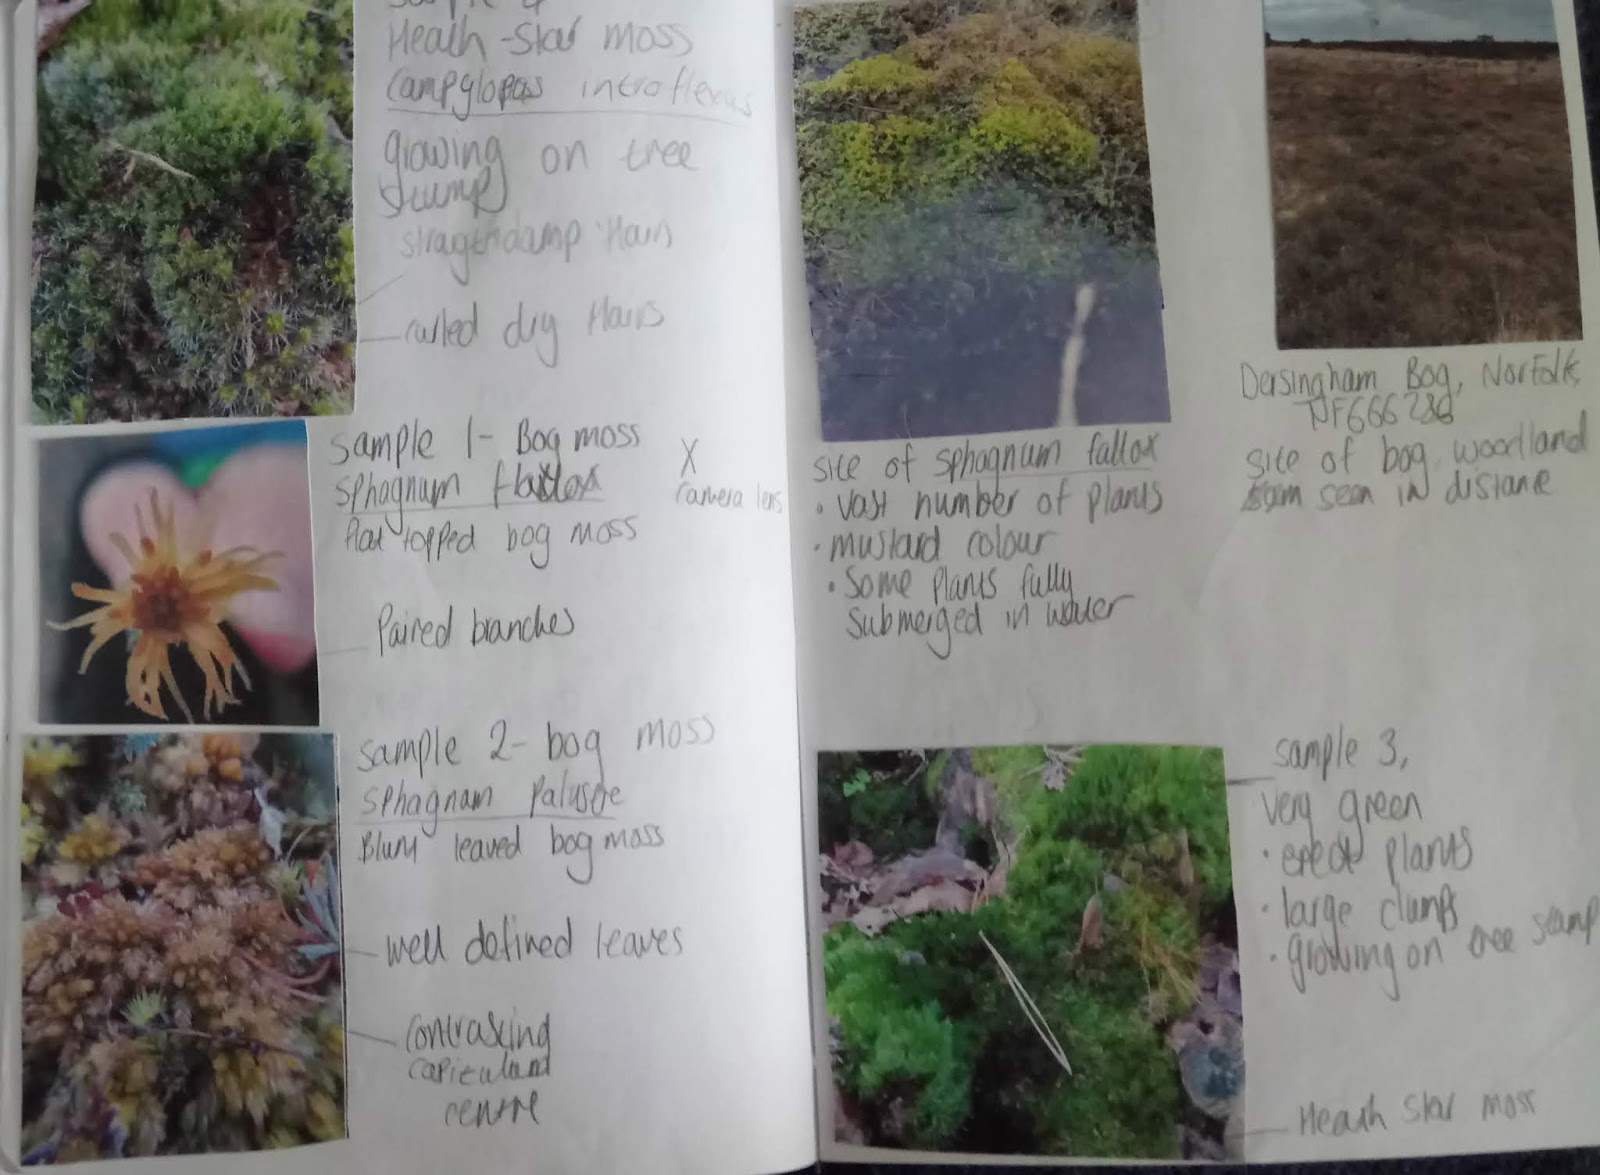 Sample 4
Heath-Star moss
Campylopas introflexus
growing on tree
stump
damp Hairs
curled dry Hairs
Sample 1- Bog moss
Sphagnum fallox
flat topped bog moss
X
camera lens
Paired branches
Sample 2- bog moss
Sphagnam Palustre
Blunt leaved bog moss
well defined leaves
Contrasting
capitulum
centre
Site of sphagnum fallox
• vast number of plants
• mustard colour
• Some plants fully
submerged in water
Dersingham Bog, Norfolk,
TF666286
Site of bog woodland
seen in distance
Sample 3,
very green
• erect plants
• large clumps
• growing on tree stump
Heath Star moss